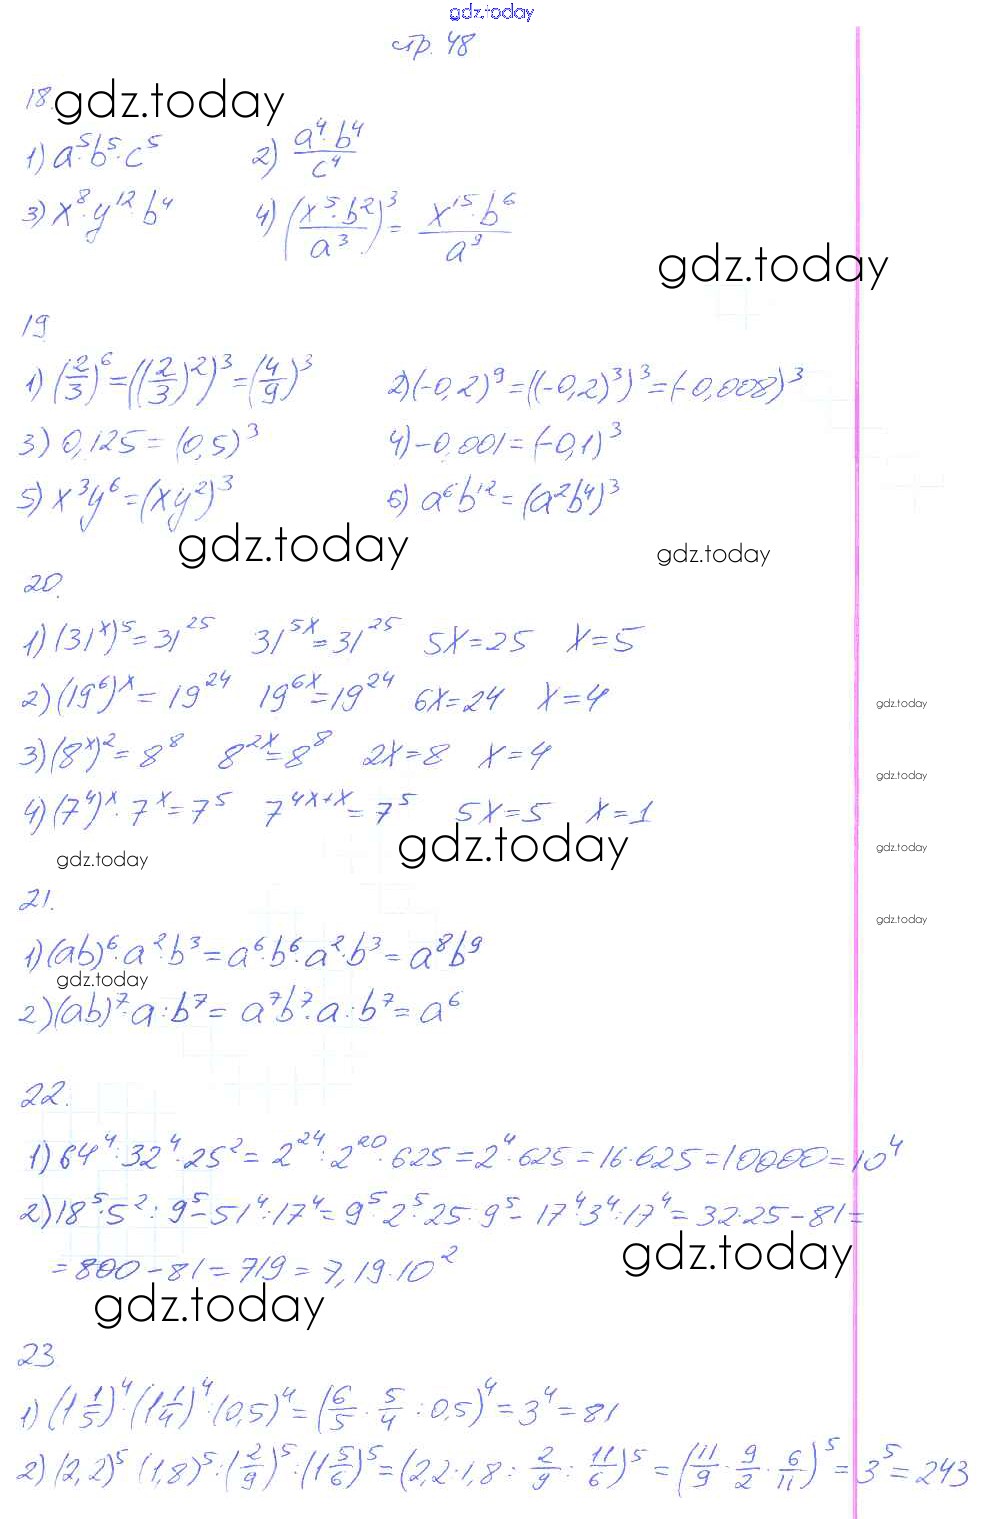 gdz.today
стр. 48
18. gdz.today
1) a⁵·b⁵·c⁵ 2) a⁴·b⁴/c⁴
3) x⁸·y¹²·b⁴ 4) (x⁵·b²/a³)³ = x¹⁵·b⁶/a⁹
gdz.today
19
1) (2/3)⁶ = ((2/3)²)³ = (4/9)³ 2) (-0,2)⁹ = ((-0,2)³)³ = (-0,008)³
3) 0,125 = (0,5)³ 4) -0,001 = (-0,1)³
5) x³y⁶ = (xy²)³ 6) a⁶b¹² = (a²b⁴)³
gdz.today gdz.today
20.
1) (31ˣ)⁵ = 31²⁵ 31⁵ˣ = 31²⁵ 5x = 25 x = 5
2) (19⁶)ˣ = 19²⁴ 19⁶ˣ = 19²⁴ 6x = 24 x = 4
gdz.today
3) (8ˣ)² = 8⁸ 8²ˣ = 8⁸ 2x = 8 x = 4
gdz.today
4) (7⁴)ˣ · 7ˣ = 7⁵ 7⁴ˣ⁺ˣ = 7⁵ 5x = 5 x = 1
gdz.today gdz.today gdz.today
21.
gdz.today
1) (ab)⁶·a²·b³ = a⁶·b⁶·a²·b³ = a⁸b⁹
gdz.today
2) (ab)⁷:a:b⁷ = a⁷b⁷:a:b⁷ = a⁶
22.
1) 64⁴:32⁴·25² = 2²⁴:2²⁰·625 = 2⁴·625 = 16·625 = 10000 = 10⁴
2) 18⁵·5²:9⁵ - 51⁴:17⁴ = 9⁵·2⁵·25:9⁵ - 17⁴·3⁴:17⁴ = 32·25 - 81 =
gdz.today
= 800 - 81 = 719 = 7,19·10²
gdz.today
23
1) (1 1/5)⁴·(1 1/4)⁴:(0,5)⁴ = (6/5 · 5/4 : 0,5)⁴ = 3⁴ = 81
2) (2,2)⁵ (1,8)⁵:(2/9)⁵:(1 5/6)⁵ = (2,2·1,8 : 2/9 : 11/6)⁵ = (11/9 · 9/2 · 6/11)⁵ = 3⁵ = 243